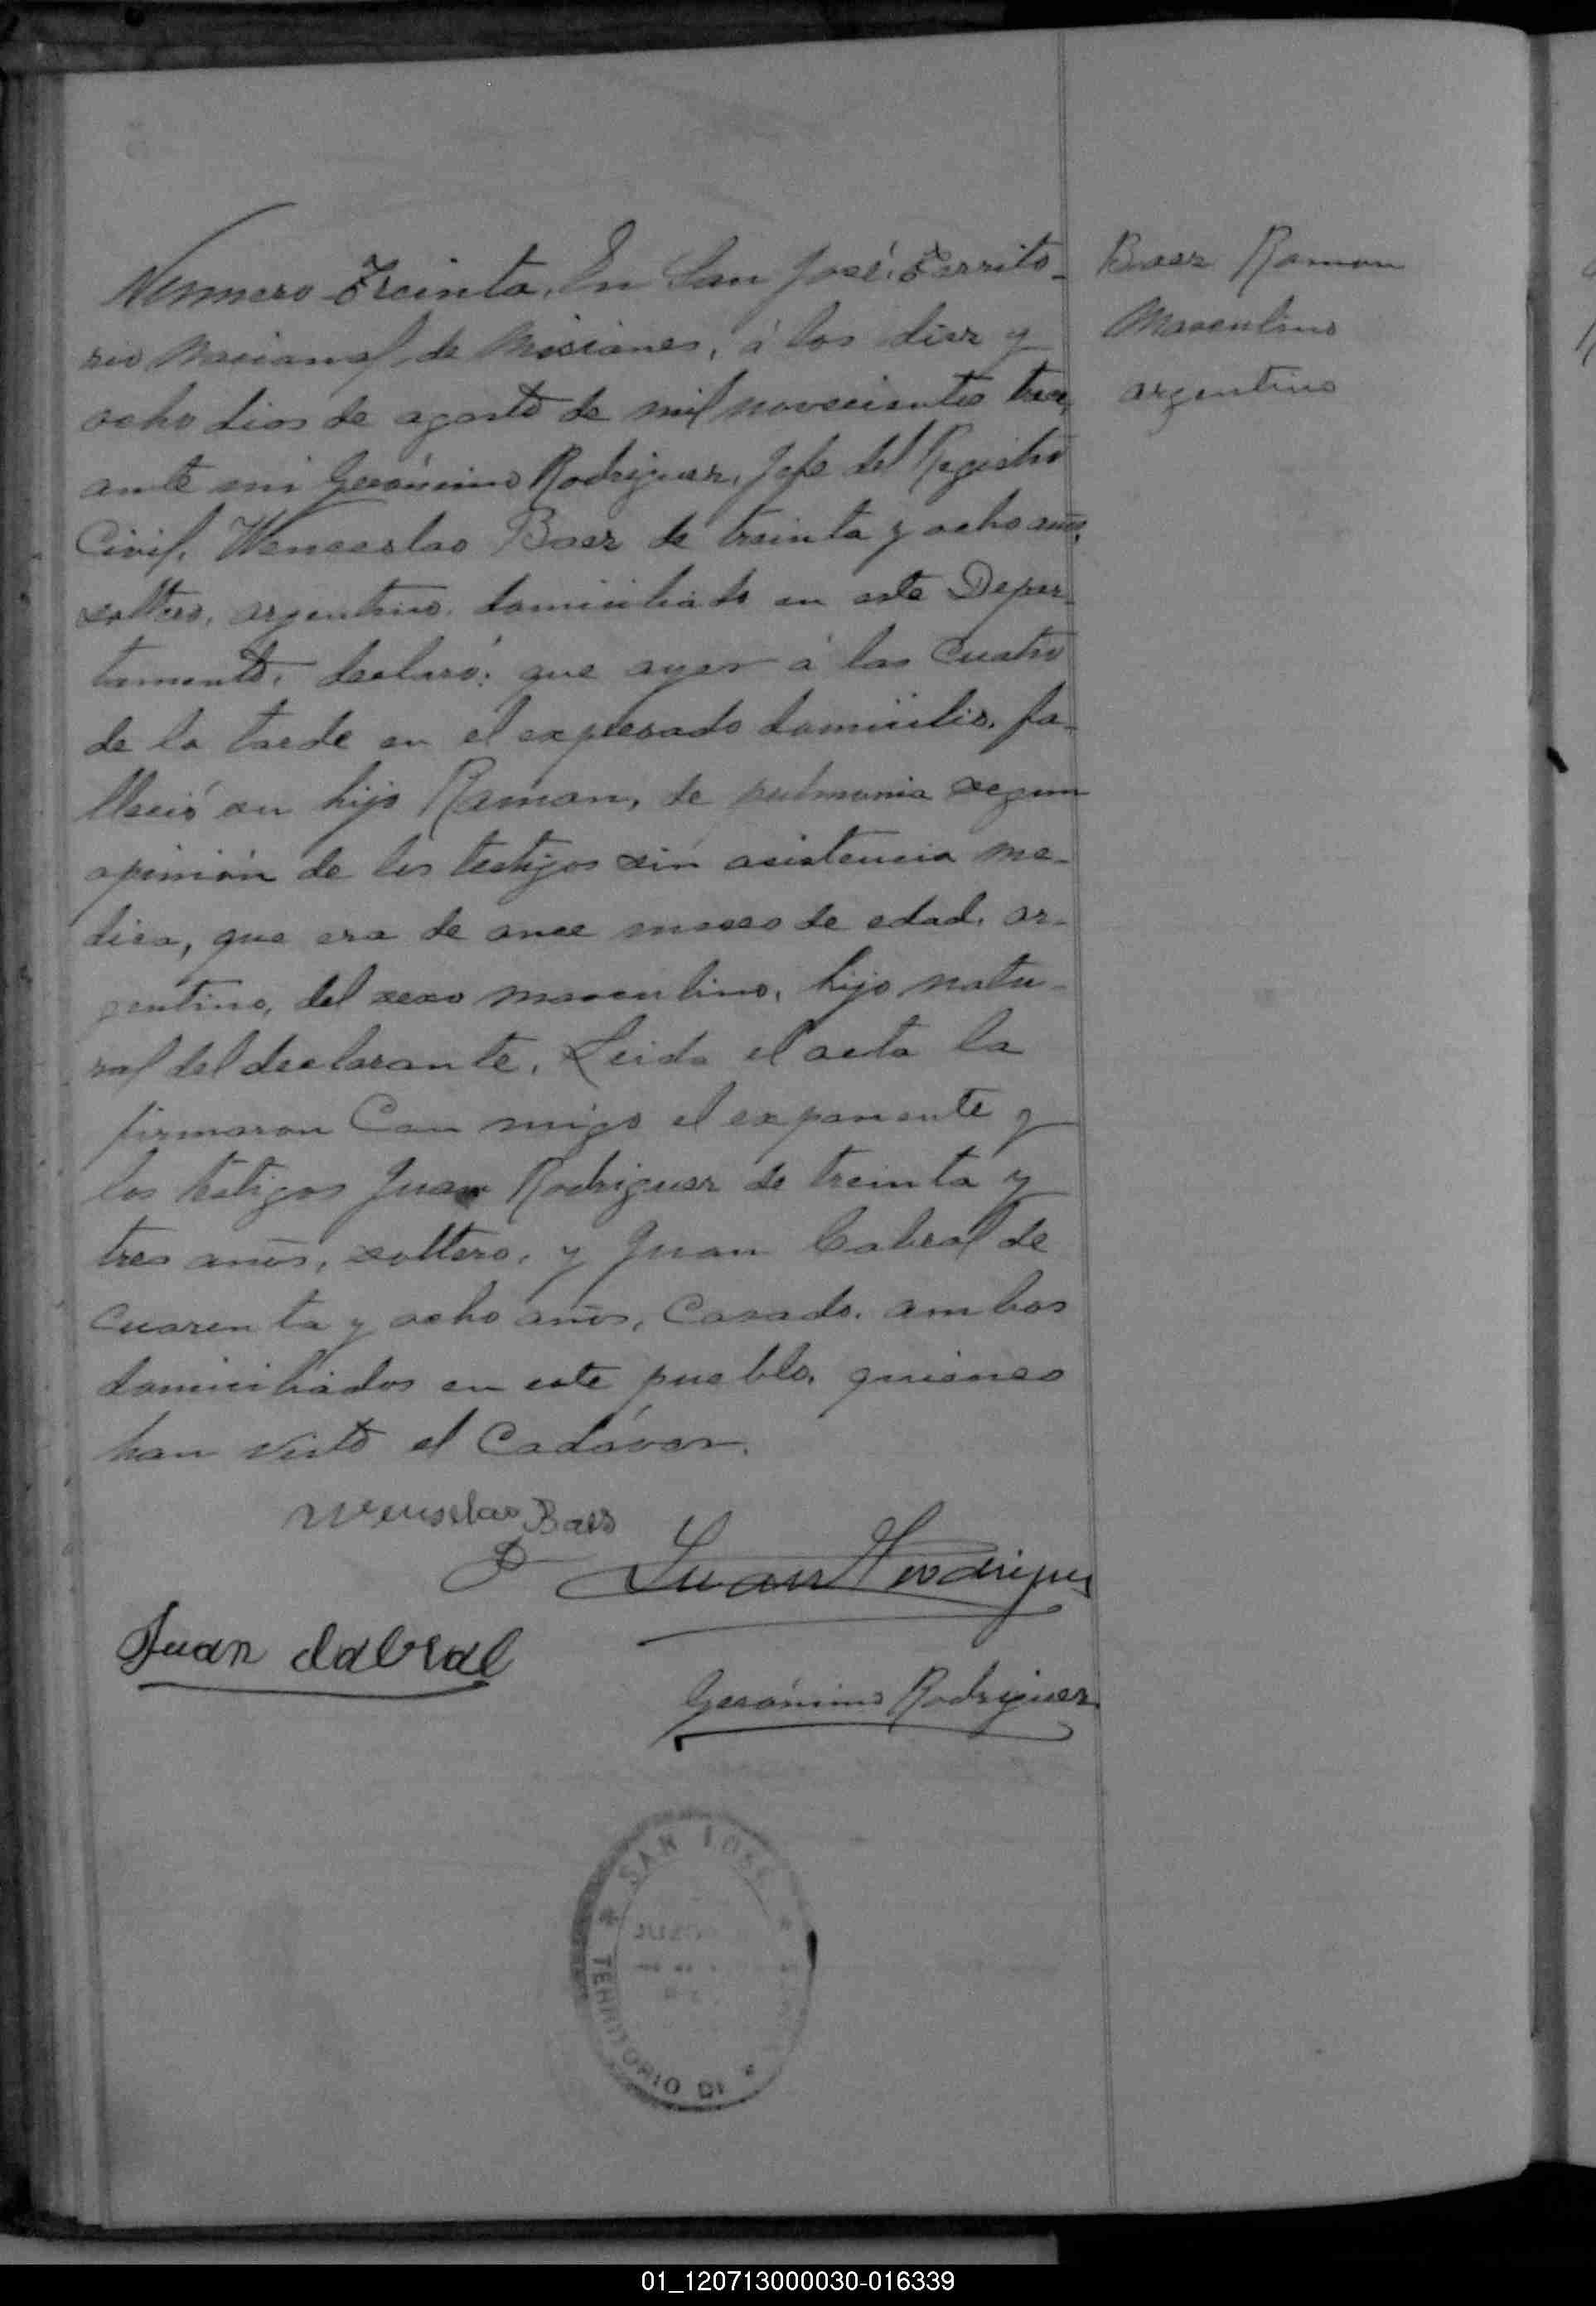 Numero Treinta. En San José, Territo-
rio Nacional de Misiones, á los diez y
ocho dias de agosto de mil novecientos trece,
ante mi Gerónimo Rodriguez, Jefe del Registro
Civil, Wenceslao Baez de treinta y ocho años,
soltero, argentino, domiciliado en este Depar-
tamento, declaró: que ayer á las cuatro
de la tarde en el expresado domicilio, fa-
lleció su hijo Ramon, de pulmonia segun
opinión de los testigos sin asistencia me-
dica, que era de once meses de edad, ar-
gentino, del sexo masculino, hijo natu-
ral del declarante. Leida el acta la
firmaron Con migo el exponente y
los testigos Juan Rodriguez de treinta y
tres años, soltero, y Juan Cabral de
cuarenta y ocho años, Casado, ambos
domiciliados en este pueblo, quienes
han visto el Cadáver.
Baez Ramon
Masculino
argentino
Wenselao Baes
Juan Rodriguez
Juan Cabral
Gerónimo Rodriguez
SAN JOSE
TERRITORIO DE
01_120713000030-016339